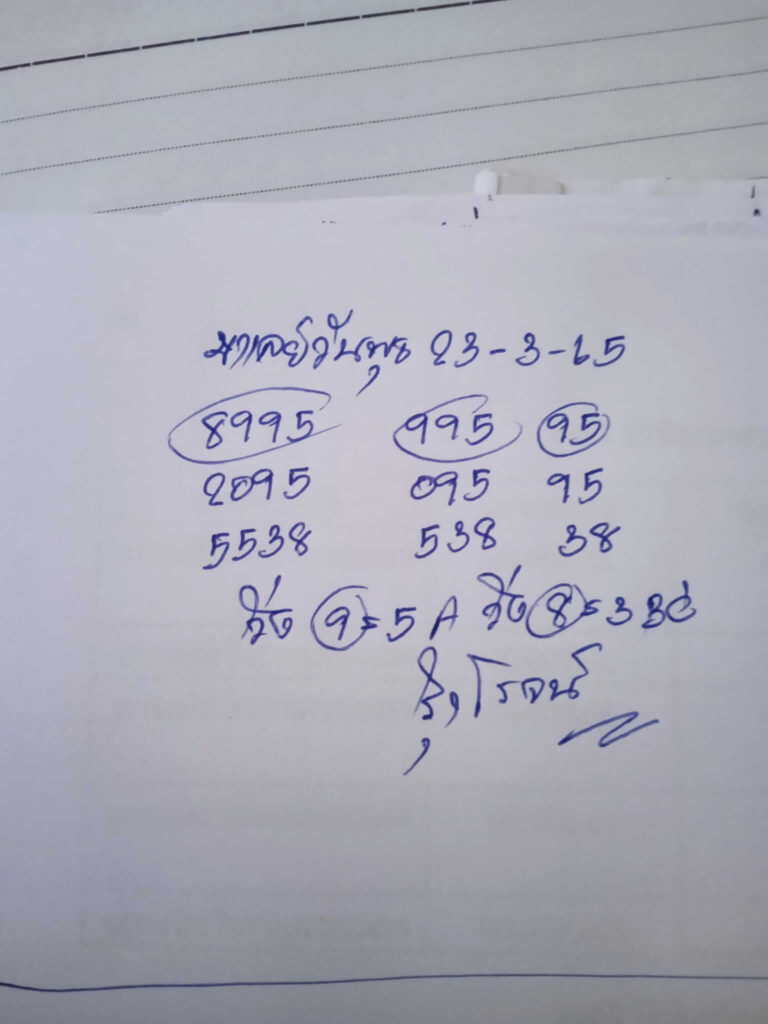 มาเลย์วันพุธ 23-3-65
8995 995 95
2095 095 95
5538 538 38
วิ่ง 9=5 A วิ่ง 8=3
รุ่งโรจน์